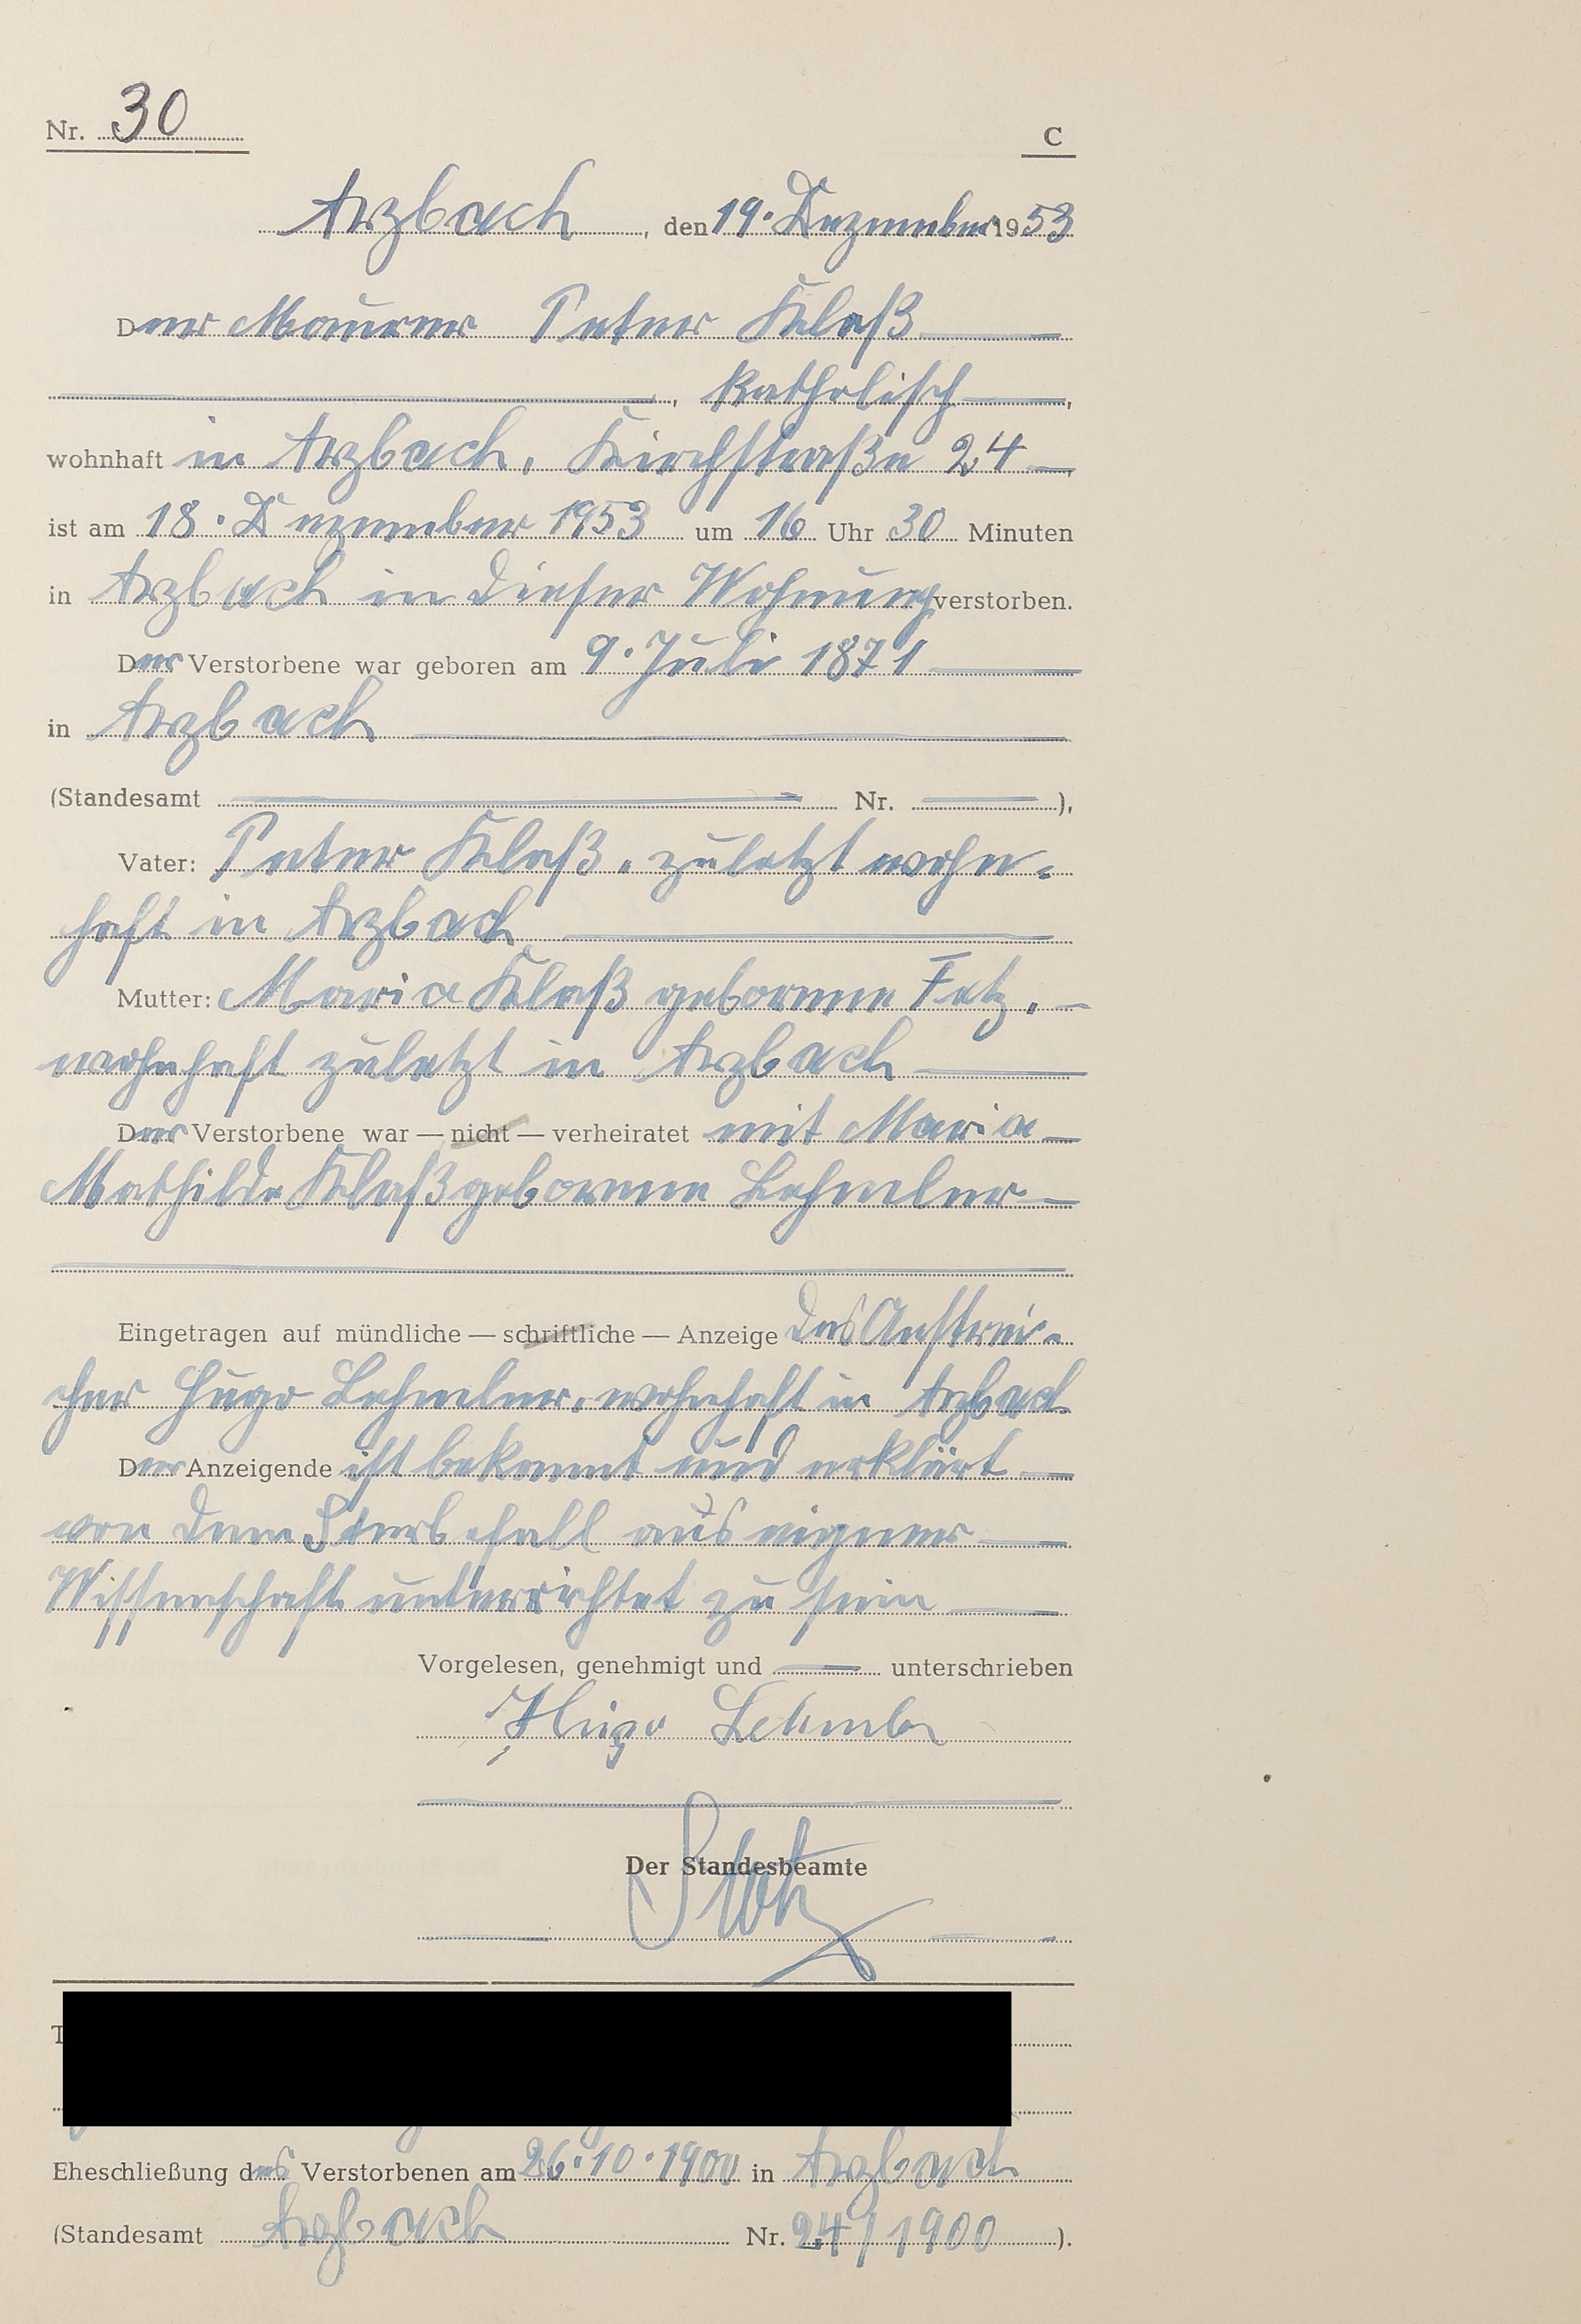 Nr. 30
C
Arzbach, den 19. Dezember 1953
Der Maurer Peter Klaß
, katholisch,
wohnhaft in Arzbach, Kirchstraße 24
ist am 18. Dezember 1953 um 16 Uhr 30 Minuten
in Arzbach in dieser Wohnung verstorben.
Der Verstorbene war geboren am 9. Juli 1871
in Arzbach
(Standesamt Nr. ),
Vater: Peter Klaß, zuletzt wohn-
haft in Arzbach
Mutter: Maria Klaß geborene Fetz,
wohnhaft zuletzt in Arzbach
Der Verstorbene war — nicht — verheiratet mit Maria
Mathilde Klaß geborene Lehmler
Eingetragen auf mündliche — schriftliche — Anzeige des Anstrei-
cher Hugo Lehmler, wohnhaft in Arzbach
Der Anzeigende ist bekannt und erklärt
von dem Sterbefall aus eigener
Wissenschaft unterrichtet zu sein
Vorgelesen, genehmigt und unterschrieben
Hugo Lehmler
Der Standesbeamte
Eheschließung des Verstorbenen am 26.10.1900 in Arzbach
(Standesamt Arzbach Nr. 24/1900 ).